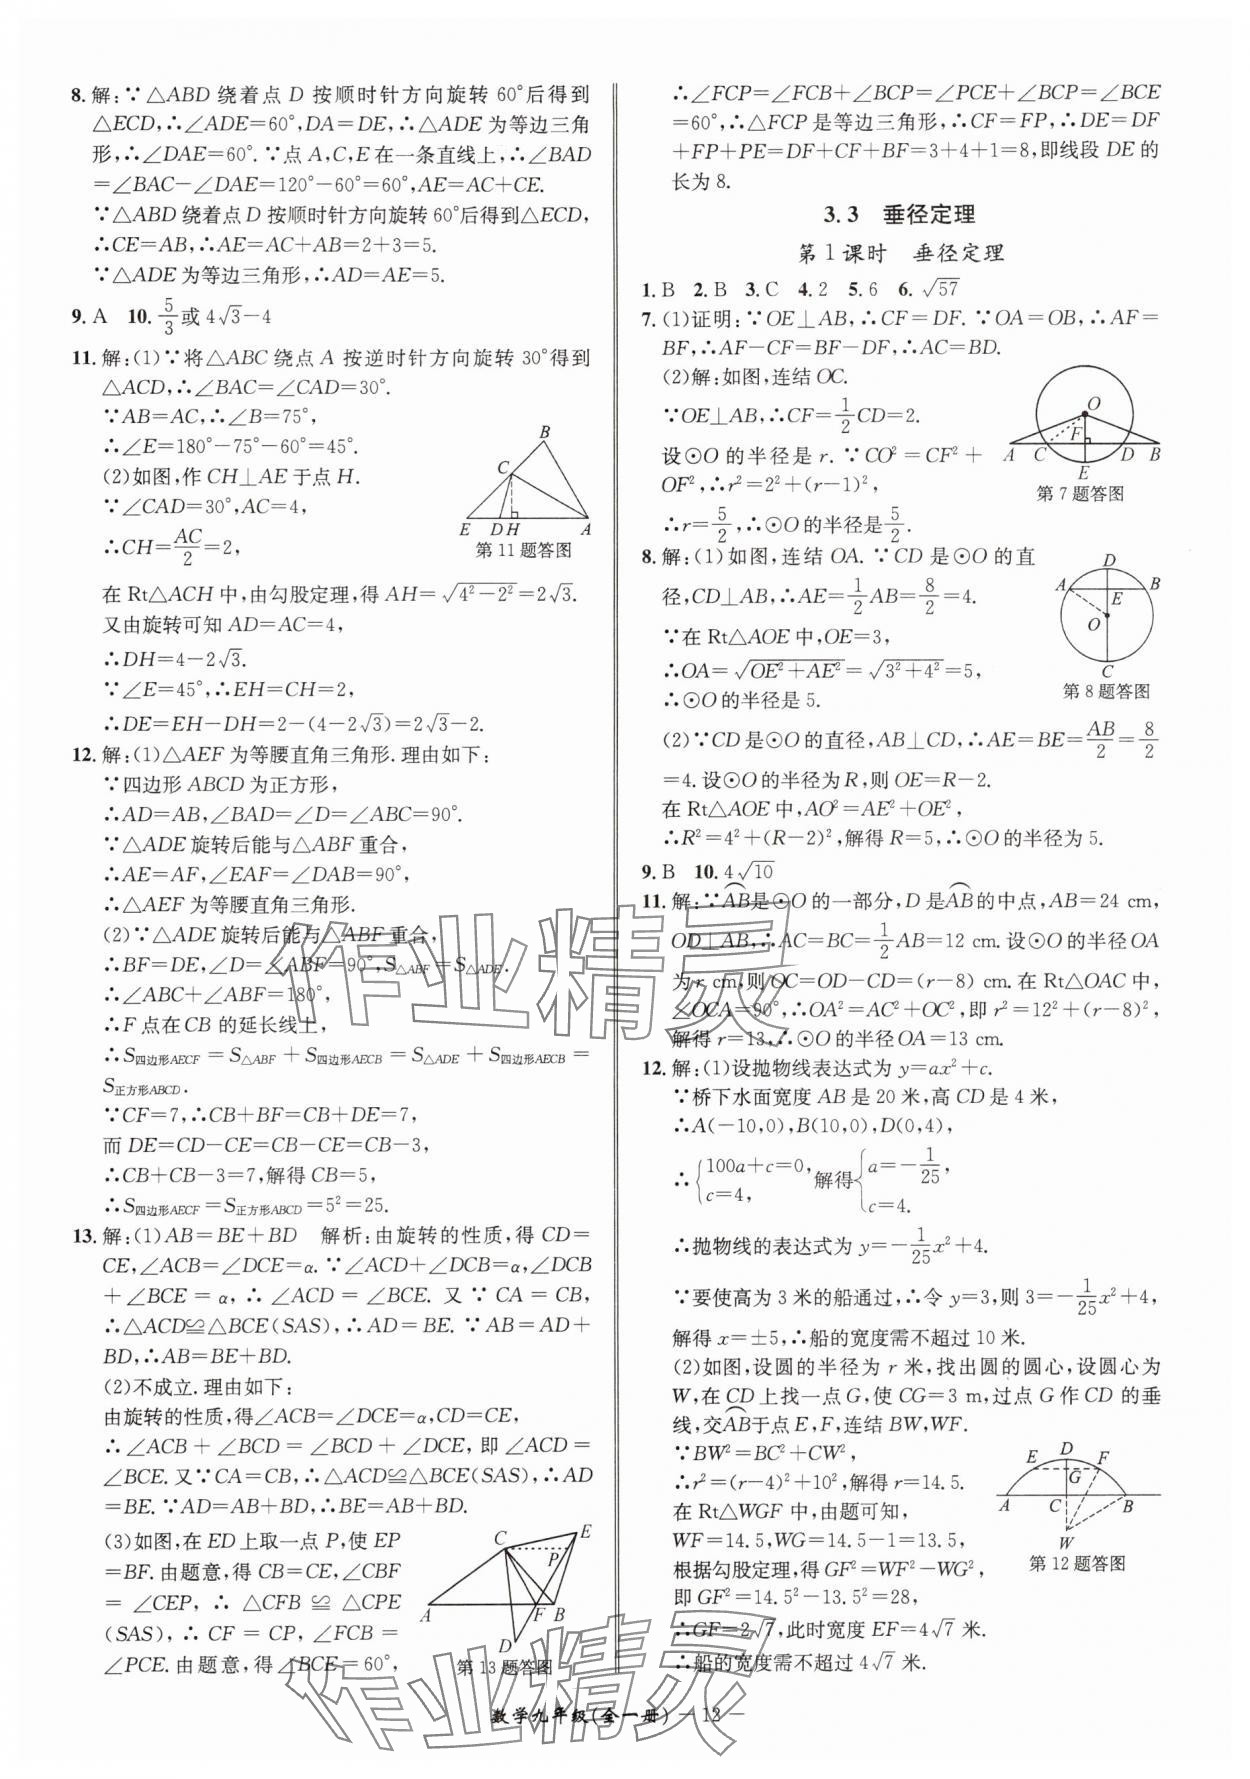 8. 解:∵△ABD 绕着点 D 按顺时针方向旋转 60°后得到
△ECD,∴∠ADE=60°,DA=DE,∴△ADE 为等边三角
形,∴∠DAE=60°.∵点 A,C,E 在一条直线上,∴∠BAD
=∠BAC-∠DAE=120°-60°=60°,AE=AC+CE.
∵△ABD 绕着点 D 按顺时针方向旋转 60°后得到△ECD,
∴CE=AB,∴AE=AC+AB=2+3=5.
∵△ADE 为等边三角形,∴AD=AE=5.
9. A 10. 5/3 或 4√3-4
11. 解:(1)∵将△ABC 绕点 A 按逆时针方向旋转 30°得到
△ACD,∴∠BAC=∠CAD=30°.
∵AB=AC,∴∠B=75°,
∴∠E=180°-75°-60°=45°.
(2)如图,作 CH⊥AE 于点 H.
∵∠CAD=30°,AC=4,
∴CH=AC/2=2,
B C E D H A
第 11 题答图
在 Rt△ACH 中,由勾股定理,得 AH=√(4²-2²)=2√3.
又由旋转可知 AD=AC=4,
∴DH=4-2√3.
∵∠E=45°,∴EH=CH=2,
∴DE=EH-DH=2-(4-2√3)=2√3-2.
12. 解:(1)△AEF 为等腰直角三角形.理由如下:
∵四边形 ABCD 为正方形,
∴AD=AB,∠BAD=∠D=∠ABC=90°.
∵△ADE 旋转后能与△ABF 重合,
∴AE=AF,∠EAF=∠DAB=90°,
∴△AEF 为等腰直角三角形.
(2)∵△ADE 旋转后能与△ABF 重合,
∴BF=DE,∠D=∠ABF=90°,S△ABF=S△ADE.
∴∠ABC+∠ABF=180°,
∴F 点在 CB 的延长线上,
∴S四边形AECF=S△ABF+S四边形AECB=S△ADE+S四边形AECB=
S正方形ABCD.
∵CF=7,∴CB+BF=CB+DE=7,
而 DE=CD-CE=CB-CE=CB-3,
∴CB+CB-3=7,解得 CB=5,
∴S四边形AECF=S正方形ABCD=5²=25.
13. 解:(1)AB=BE+BD 解析:由旋转的性质,得 CD=
CE,∠ACB=∠DCE=α.∵∠ACD+∠DCB=α,∠DCB
+∠BCE=α,∴∠ACD=∠BCE.又∵CA=CB,
∴△ACD≌△BCE(SAS),∴AD=BE.∵AB=AD+
BD,∴AB=BE+BD.
(2)不成立.理由如下:
由旋转的性质,得∠ACB=∠DCE=α,CD=CE,
∴∠ACB+∠BCD=∠BCD+∠DCE,即∠ACD=
∠BCE.又∵CA=CB,∴△ACD≌△BCE(SAS),∴AD
=BE.∵AD=AB+BD,∴BE=AB+BD.
(3)如图,在 ED 上取一点 P,使 EP
=BF.由题意,得 CB=CE,∠CBF
=∠CEP,∴△CFB≌△CPE
(SAS),∴CF=CP,∠FCB=
∠PCE.由题意,得∠BCE=60°,
C E P A F B D
第 13 题答图
∴∠FCP=∠FCB+∠BCP=∠PCE+∠BCP=∠BCE
=60°,∴△FCP 是等边三角形,∴CF=FP,∴DE=DF
+FP+PE=DF+CF+BF=3+4+1=8,即线段 DE 的
长为 8.
3.3 垂径定理
第 1 课时 垂径定理
1. B 2. B 3. C 4. 2 5. 6 6. √57
7. (1)证明:∵OE⊥AB,∴CF=DF.∵OA=OB,∴AF=
BF,∴AF-CF=BF-DF,∴AC=BD.
(2)解:如图,连结 OC.
∵OE⊥AB,∴CF=1/2CD=2.
设⊙O 的半径是 r.∵CO²=CF²+
OF²,∴r²=2²+(r-1)²,
∴r=5/2,∴⊙O 的半径是 5/2.
O F A C D B E
第 7 题答图
8. 解:(1)如图,连结 OA.∵CD 是⊙O 的直
径,CD⊥AB,∴AE=1/2AB=8/2=4.
∵在 Rt△AOE 中,OE=3,
∴OA=√(OE²+AE²)=√(3²+4²)=5,
∴⊙O 的半径是 5.
D A B E O C
第 8 题答图
(2)∵CD 是⊙O 的直径,AB⊥CD,∴AE=BE=AB/2=8/2
=4.设⊙O 的半径为 R,则 OE=R-2.
在 Rt△AOE 中,AO²=AE²+OE²,
∴R²=4²+(R-2)²,解得 R=5,∴⊙O 的半径为 5.
9. B 10. 4√10
11. 解:∵A͡B是⊙O 的一部分,D 是A͡B的中点,AB=24 cm,
OD⊥AB,∴AC=BC=1/2AB=12 cm.设⊙O 的半径 OA
为 r cm,则 OC=OD-CD=(r-8) cm.在 Rt△OAC 中,
∠OCA=90°,∴OA²=AC²+OC²,即 r²=12²+(r-8)²,
解得 r=13,∴⊙O 的半径 OA=13 cm.
12. 解:(1)设抛物线表达式为 y=ax²+c.
∵桥下水面宽度 AB 是 20 米,高 CD 是 4 米,
∴A(-10,0),B(10,0),D(0,4),
∴{100a+c=0, c=4, 解得{a=-1/25, c=4.
∴抛物线的表达式为 y=-1/25x²+4.
∵要使高为 3 米的船通过,∴令 y=3,则 3=-1/25x²+4,
解得 x=±5,∴船的宽度需不超过 10 米.
(2)如图,设圆的半径为 r 米,找出圆的圆心,设圆心为
W,在 CD 上找一点 G,使 CG=3 m,过点 G 作 CD 的垂
线,交A͡B于点 E,F,连结 BW,WF.
∵BW²=BC²+CW²,
∴r²=(r-4)²+10²,解得 r=14.5.
在 Rt△WGF 中,由题可知,
WF=14.5,WG=14.5-1=13.5,
根据勾股定理,得 GF²=WF²-WG²,
即 GF²=14.5²-13.5²=28,
∴GF=2√7,此时宽度 EF=4√7 米.
∴船的宽度需不超过 4√7 米.
E D F G A C B W
第 12 题答图
作业精灵
作业精灵
数学九年级(全一册) — 12 —